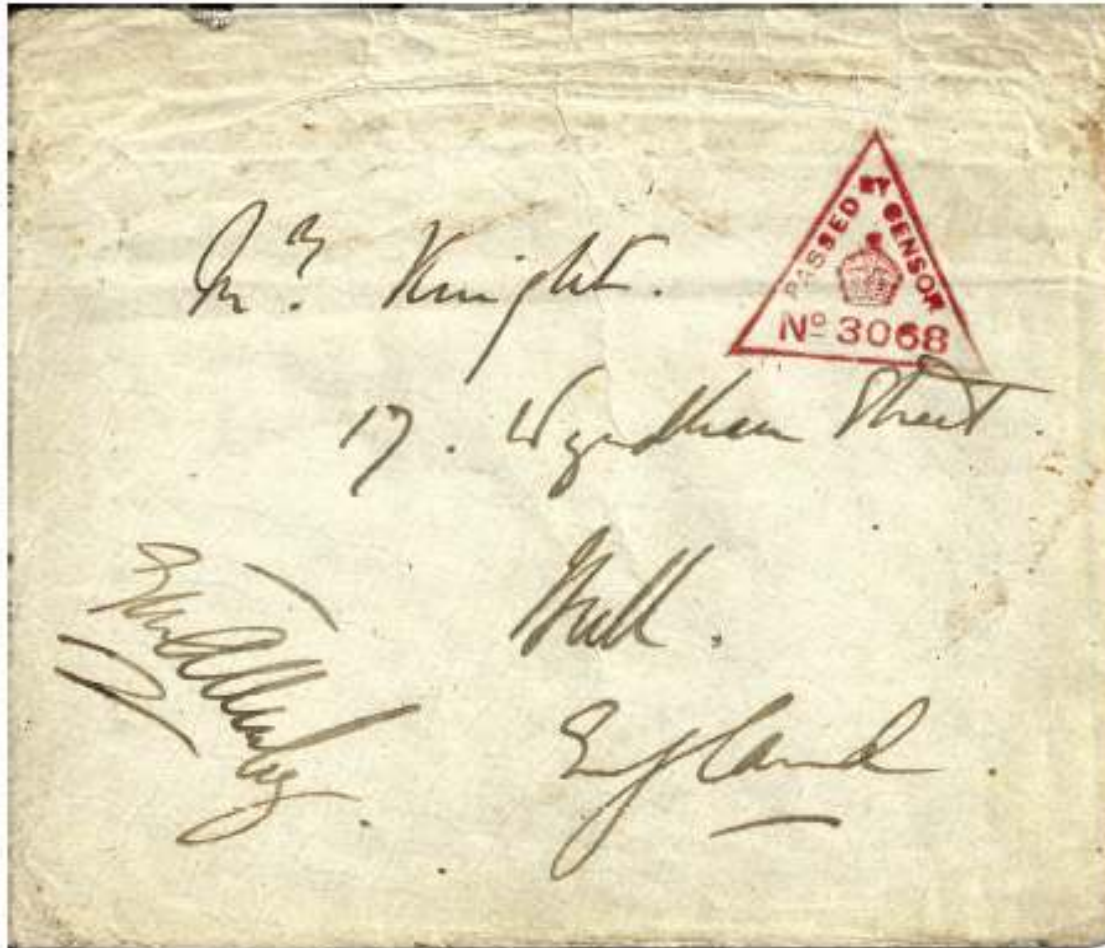 PASSED BY CENSOR
Nº 3068
Mrs. Knight.
17. Wyndham Street.
Hull.
England
Allenby.